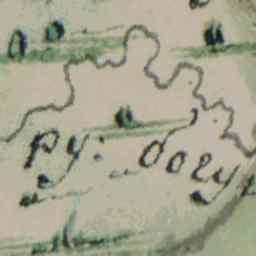 ру: богу